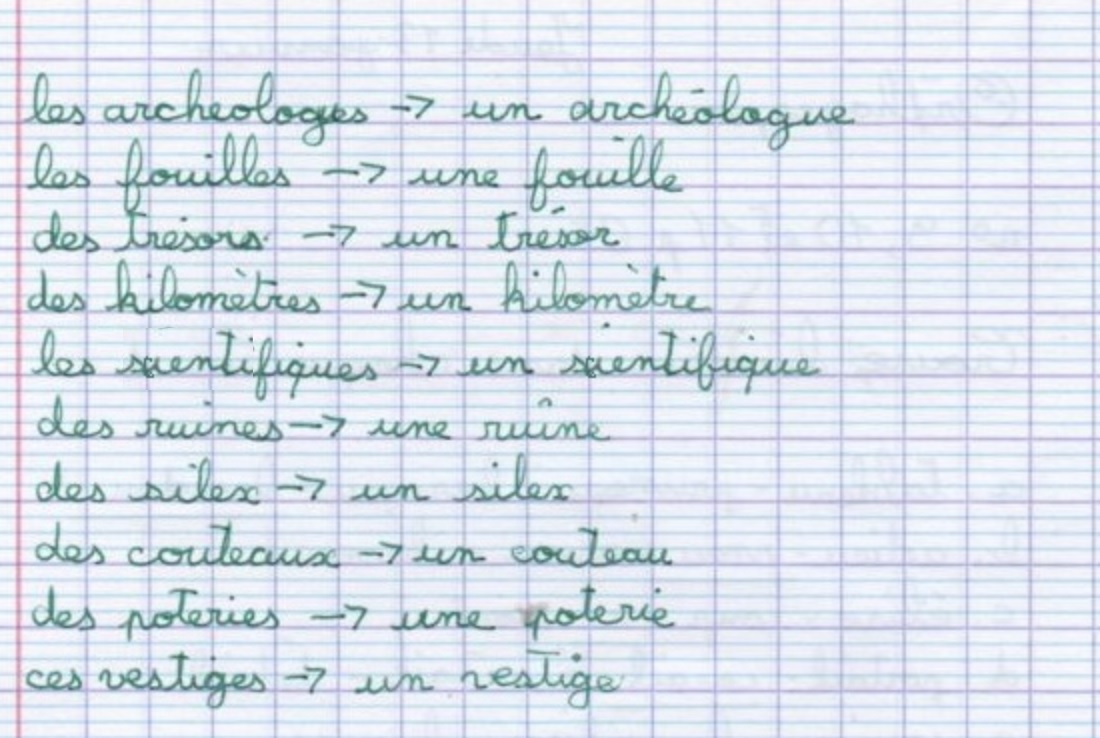 les archeologes → un archéologue
les fouilles → une fouille
des trésors → un trésor
des kilomètres → un kilomètre
les scientifiques → un scientifique
des ruines → une ruîne
des silex → un silex
des couteaux → un couteau
des poteries → une poterie
ces vestiges → un vestige